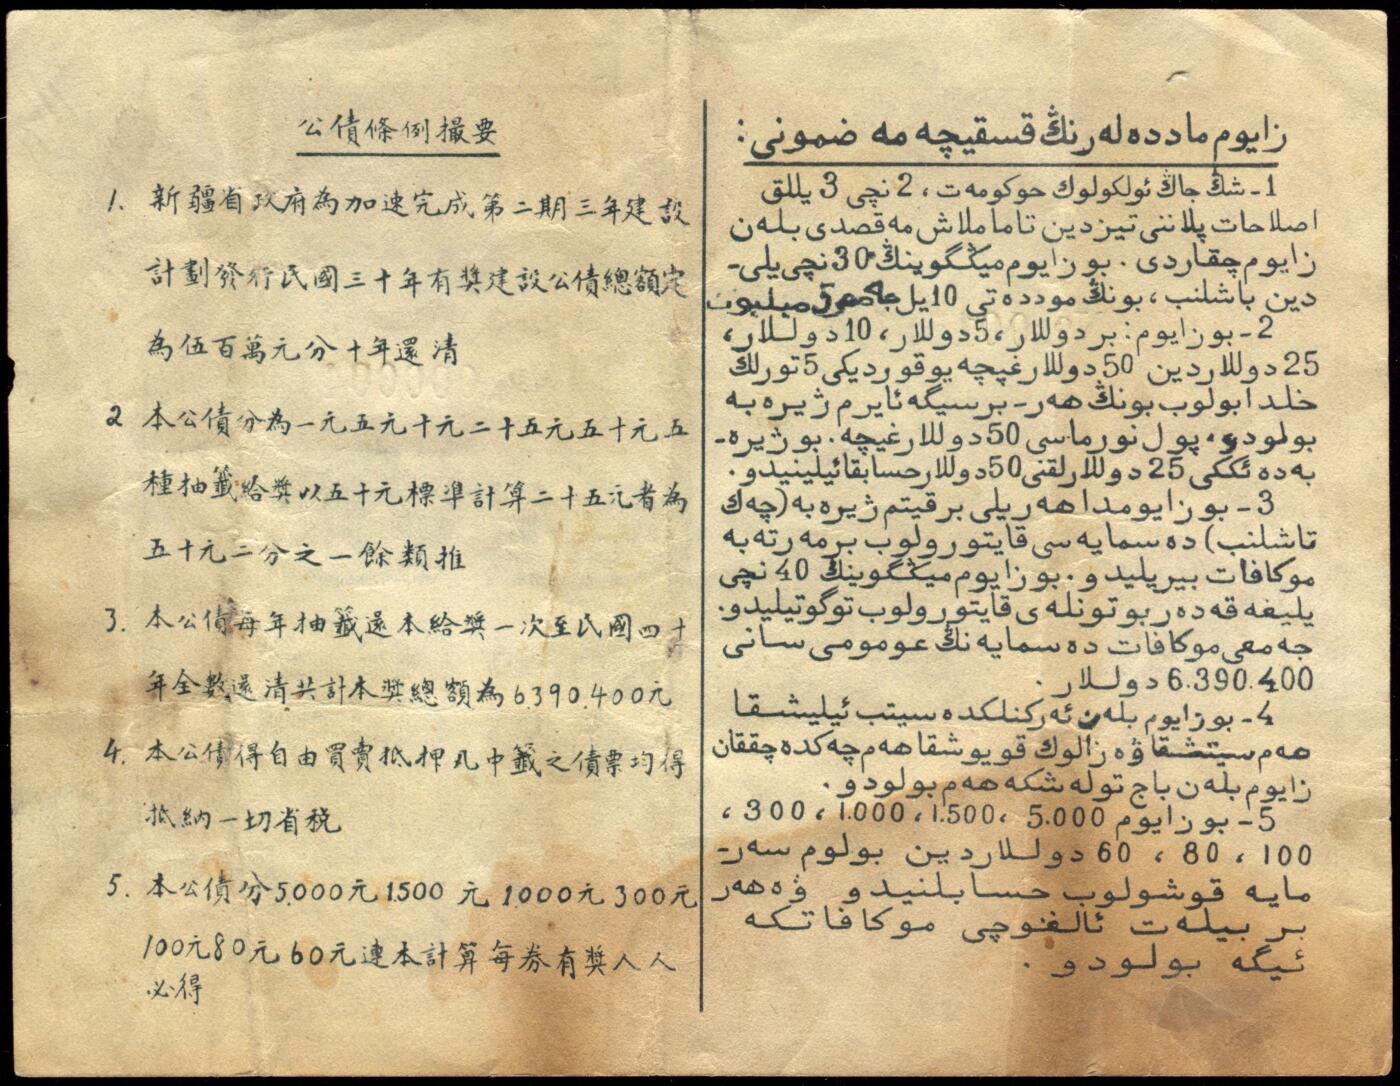 公債條例撮要
1. 新疆省政府為加速完成第二期三年建設
計劃發行民國三十年有獎建設公債總額定
為伍百萬元分十年還清
2 本公債分為一元五元十元二十五元五十元五
種抽籤給獎以五十元標準計算二十五元者為
五十元二分之一餘類推
3. 本公債每年抽籤還本給獎一次至民國四十
年全數還清共計本獎總額為6.390.400元
4. 本公債得自由買賣抵押凡中籤之債票均得
抵納一切省稅
5. 本公債分5.000元1.500元1.000元300元
100元80元60元連本計算每券有獎人人
必得
زايوم ماددەلەرنىڭ قسقيچە مەضمونى:
1- شڭ جاڭ ئولكولوك حوكومەت، 2 نچى 3 يللق
اصلاحات پلاننى تيزدين تاماملاش مەقصدى بىلەن
زايوم چقاردى. بو زايوم ميڭگوينڭ 30 نچى يلى-
دين باشلنب، بونڭ موددەتى 10 يل
2- بو زايوم: بر دوللار، 5 دوللار، 10 دوللار،
25 دوللاردين 50 دوللارغيچە يوقورديكى 5 تورلك
خلدا بولوب بونڭ هەر- برسيگە ئايرم ژيرە بە
بولودو. پول نورماسى 50 دوللارغيچە. بو ژيرە-
بە دە ئككى 25 دوللارلقنى 50 دوللار حسابقا ئيلينيدو.
3- بو زايومدا هەر يلى بر قيتم ژيرە بە (چەك
تاشلنب) دەسمايەسى قايتورولوب بر مەرتە بە
موكافات بيريليدو. بو زايوم ميڭگوينڭ 40 نچى
يليغە قەدەر بوتونلەى قايتورولوب توگوتيليدو.
جەمعى موكافات دەسمايەنڭ عومومى سانى
6.390.400 دوللار.
4- بو زايوم بلەن ئەركنلكدە سيتب ئيليشقا
هەم سيتشقا ۋە زالوك قويوشقا هەم چەكدە چققان
زايوم بلەن باج تولەشكە هەم بولودو.
5- بو زايوم 5.000، 1.500، 1.000، 300،
100، 80، 60 دوللاردين بولوم سەر-
مايە قوشولوب حسابلنيدو ۋە هەر
بر بيلەت ئالغوچى موكافاتكە
ئيگە بولودو.